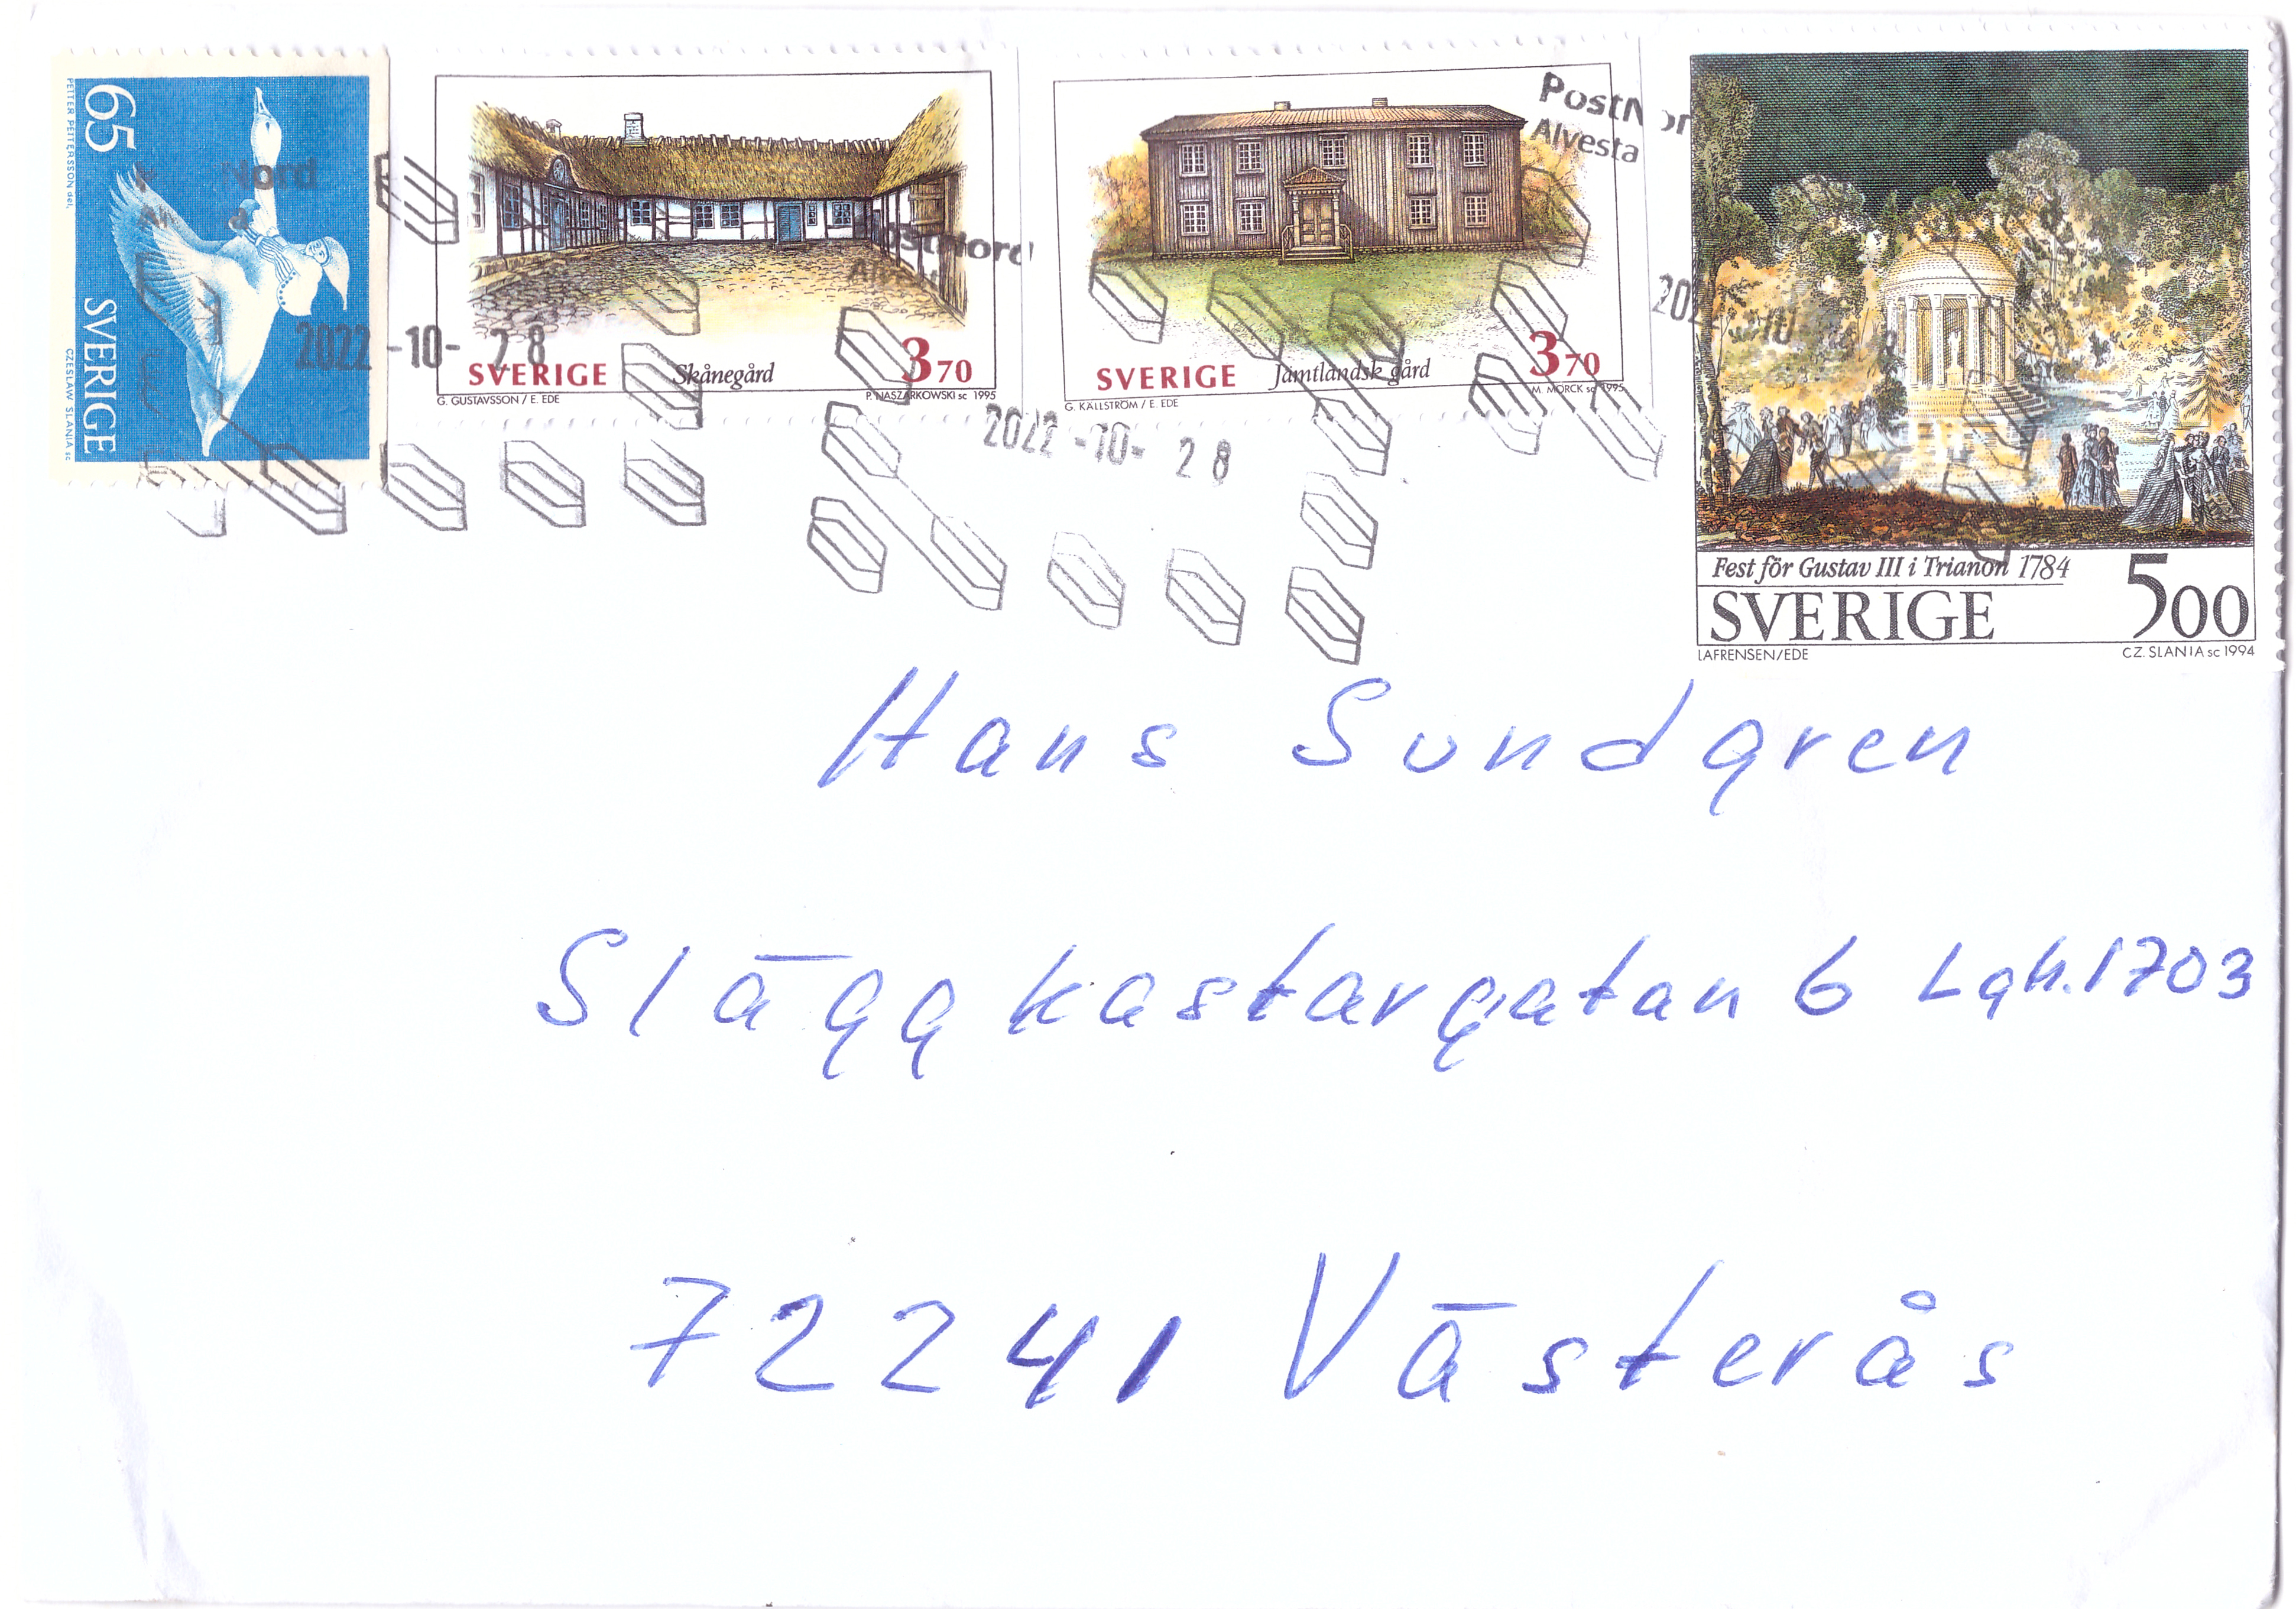 65
SVERIGE
PETTER PETTERSON del.
CZESLAW SLANIA sc
SVERIGE Skånegård 370
G. GUSTAVSSON / E. EDE P. NASZARKOWSKI sc 1995
SVERIGE Jämtlandsk gård 370
G. KÄLLSTRÖM / E. EDE M. MÖRCK sc 1995
Fest för Gustav III i Trianon 1784
SVERIGE 500
LAFRENSEN/EDE CZ. SLANIA sc 1994
PostNord
Alvesta
2022-10-28
2022-10-28
Hans Sundgren
Släggkastargatan 6 Lgh. 1703
72241 Västerås